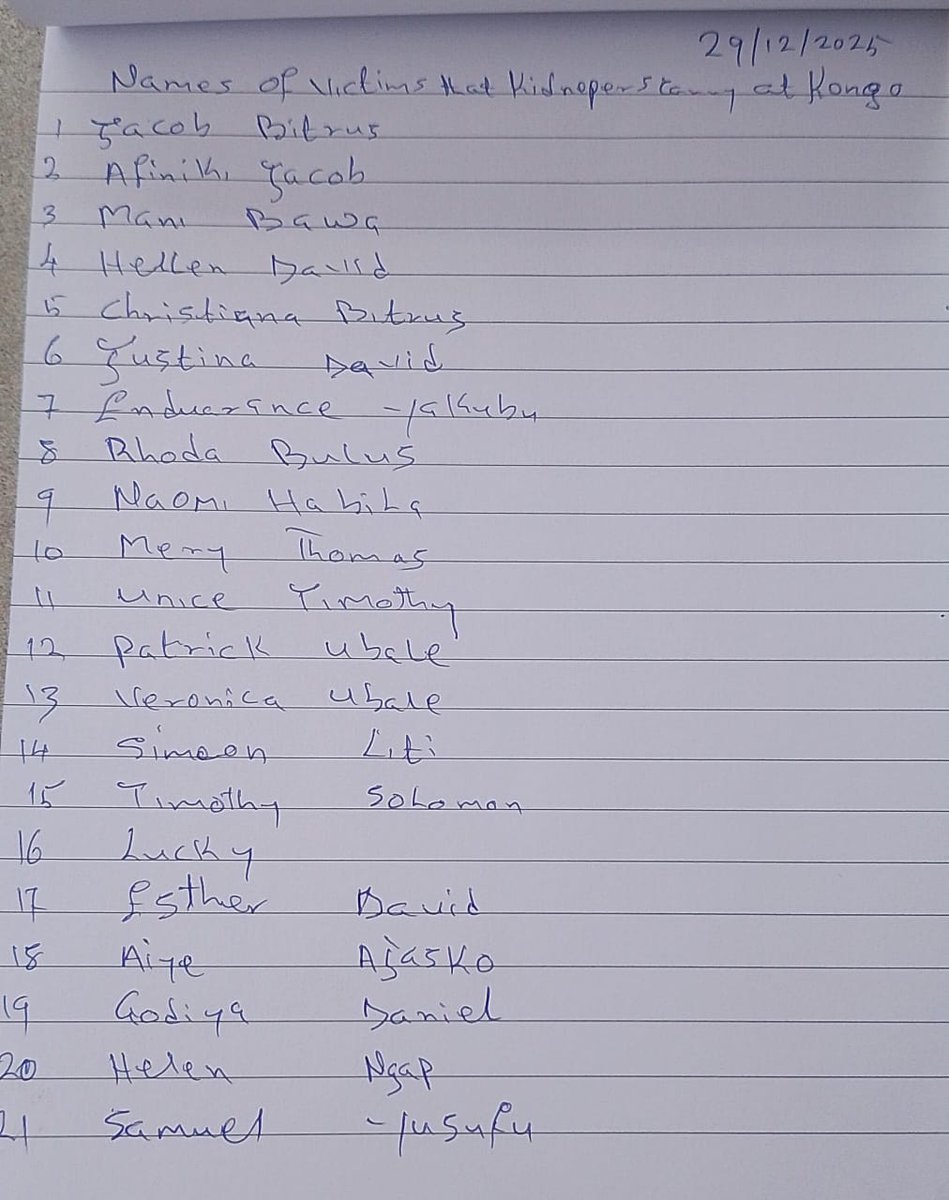 29/12/2025
Names of Victims that Kidnopers at Kongo
1 Jacob Bitrus
2 Afiniki Jacob
3 Mani Bawa
4 Hellen David
5 Christiana Bitrus
6 Justina David
7 Enduarance Yakubu
8 Rhoda Bulus
9 Naomi Habila
10 Mery Thomas
11 Unice Timothy
12 Patrick Ubale
13 Veronica Ubale
14 Simeon Liti
15 Timothy Solomon
16 Lucky
17 Esther David
18 Aiye Ajasko
19 Godiya Daniel
20 Helen Ngap
21 Samuel Yusufu